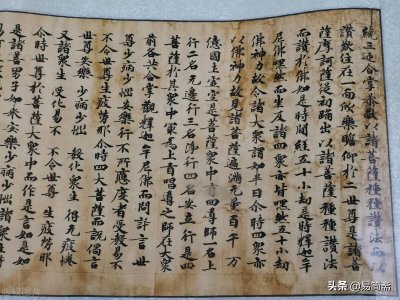 繞三迊合掌恭敬以諸菩薩種種讃法而以
讃歎住在一面欣樂瞻仰於二世尊是諸菩
薩摩訶薩從初踊出以諸菩薩種種讃法
而讃於佛如是時間經五十小劫是時釋迦牟
尼佛嘿然而坐及諸四衆亦皆嘿然五十小劫
佛神力故令諸大衆謂如半日尒時四衆亦
以佛神力故見諸菩薩遍滿无量百千万
億國土虚空是菩薩衆中有四導師一名上
行二名无邊行三名淨行四名安立行是四
菩薩於其衆中冣為上首唱導之師在大衆
前各共合掌觀釋迦牟尼佛而問訊言世尊
少病少惱安樂行不所應度者受教易不
不令世尊生疲勞耶尒時四大菩薩而說偈言
世尊安樂 少病少惱 教化衆生 得无疲惓
又諸衆生 受化易不 不令世尊 生疲勞耶
尒時世尊於菩薩大衆中而作是言如是如
是諸善男子如来安樂少病少惱諸衆生
头条 @易简斋